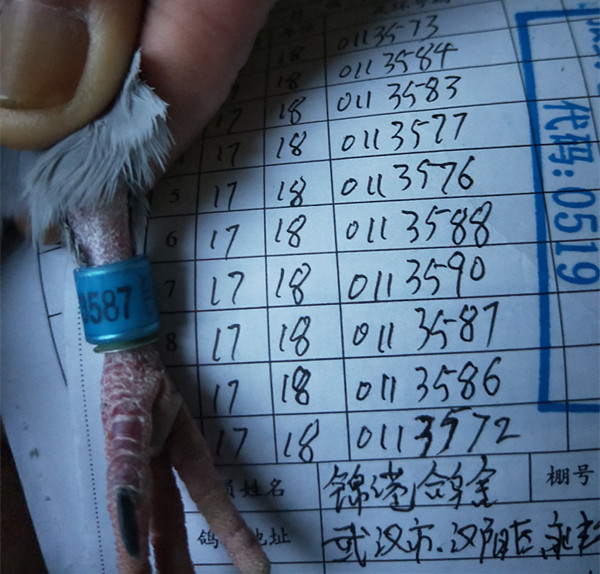 0113573
18 0113584
17 18 0113583
17 18 0113577
5 17 18 0113576
6 17 18 0113588
7 17 18 0113590
8 17 18 0113587
17 18 0113586
17 18 0113572
代码:0519
3587
员姓名
棚号
地址 武汉市.汉阳区